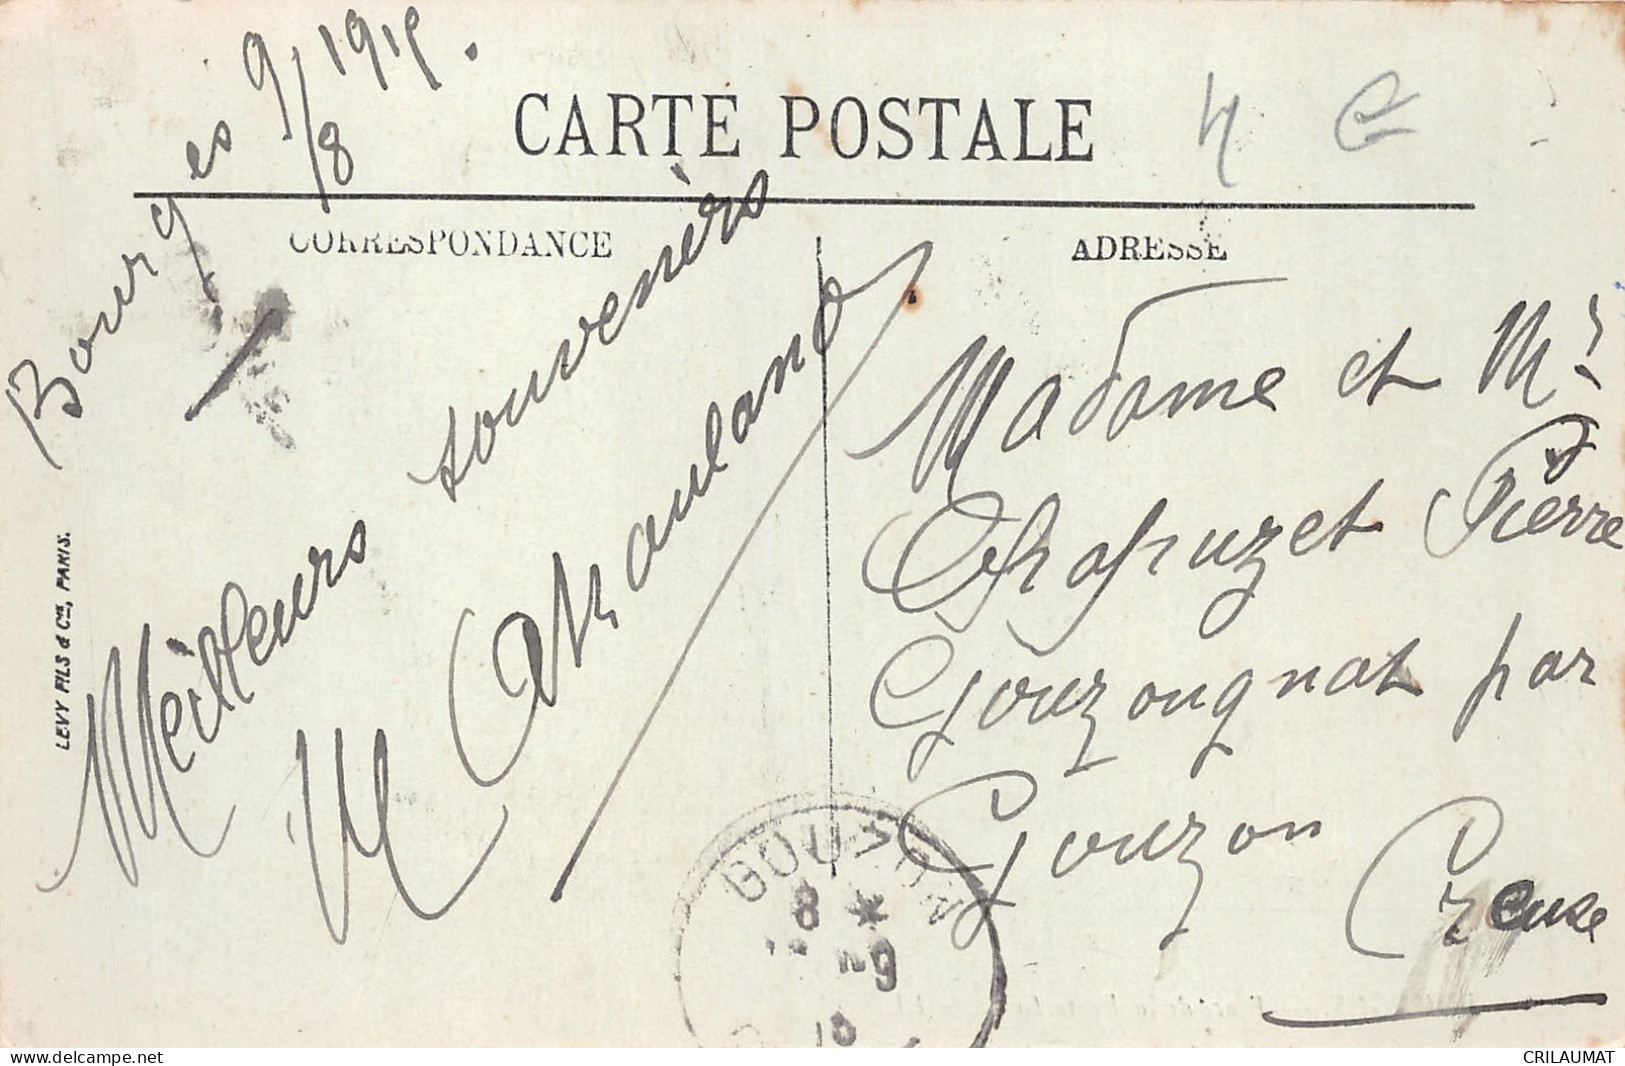 Bourges 9/8 1915.
CARTE POSTALE
4 €
CORRESPONDANCE
ADRESSE
Meilleurs souvenirs
LEVY FILS & Cie, PARIS.
Madame et Mr
Pierre
Gouzougnat par
Gouzon
Creuse
GOUZON
8 *
9
CRILAUMAT